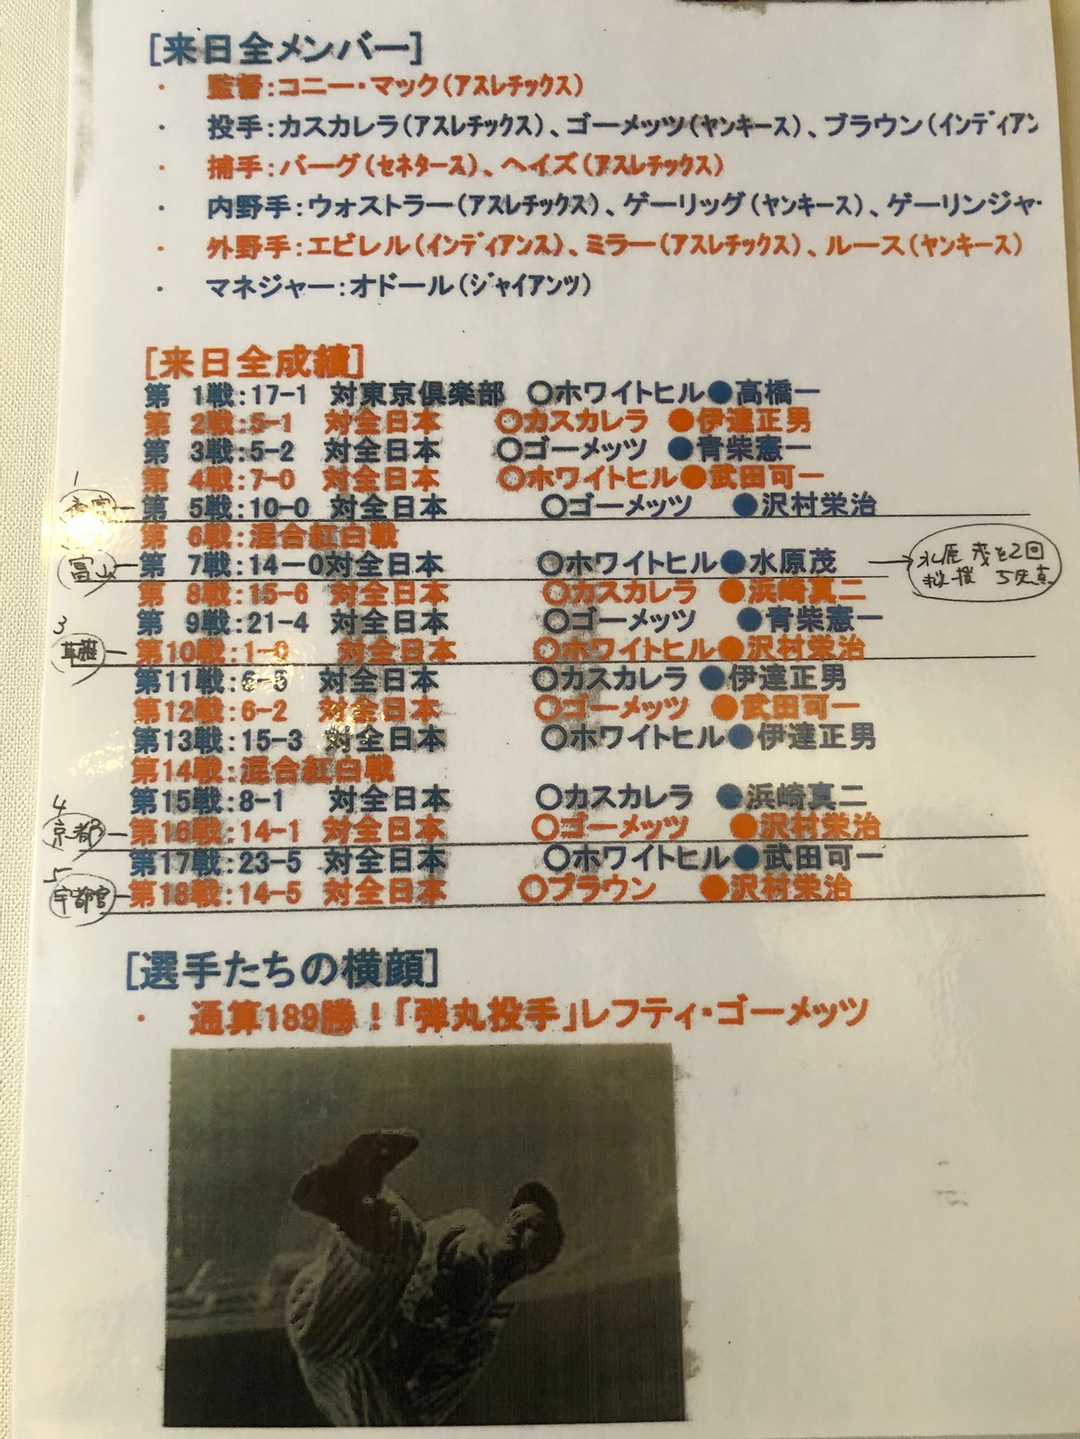 [来日全メンバー]
・ 監督:コニー・マック(アスレチックス)
・ 投手:カスカレラ(アスレチックス)、ゴーメッツ(ヤンキース)、ブラウン(インディアン
・ 捕手:バーグ(セネタース)、ヘイズ(アスレチックス)
・ 内野手:ウォストラー(アスレチックス)、ゲーリッグ(ヤンキース)、ゲーリンジャ
・ 外野手:エビレル(インディアンス)、ミラー(アスレチックス)、ルース(ヤンキース)
・ マネジャー:オドール(ジャイアンツ)
[来日全成績]
第 1戦:17-1 対東京倶楽部 ○ホワイトヒル●高橋一
第 2戦:5-1 対全日本 ○カスカレラ ●伊達正男
第 3戦:5-2 対全日本 ○ゴーメッツ ●青柴憲一
第 4戦:7-0 対全日本 ○ホワイトヒル●武田可一
1
第 5戦:10-0 対全日本 ○ゴーメッツ ●沢村栄治
第 6戦:混合紅白戦
富山 第 7戦:14-0対全日本 ○ホワイトヒル●水原茂 → 水原 茂を2回 救援 5失点
第 8戦:15-6 対全日本 ○カスカレラ ●浜崎真二
第 9戦:21-4 対全日本 ○ゴーメッツ ●青柴憲一
3
草薙 第10戦:1-0 対全日本 ○ホワイトヒル●沢村栄治
第11戦:6-5 対全日本 ○カスカレラ ●伊達正男
第12戦:6-2 対全日本 ○ゴーメッツ ●武田可一
第13戦:15-3 対全日本 ○ホワイトヒル●伊達正男
第14戦:混合紅白戦
第15戦:8-1 対全日本 ○カスカレラ ●浜崎真二
4
京都 第16戦:14-1 対全日本 ○ゴーメッツ ●沢村栄治
第17戦:23-5 対全日本 ○ホワイトヒル●武田可一
5
宇都宮 第18戦:14-5 対全日本 ○ブラウン ●沢村栄治
[選手たちの横顔]
・ 通算189勝!「弾丸投手」レフティ・ゴーメッツ